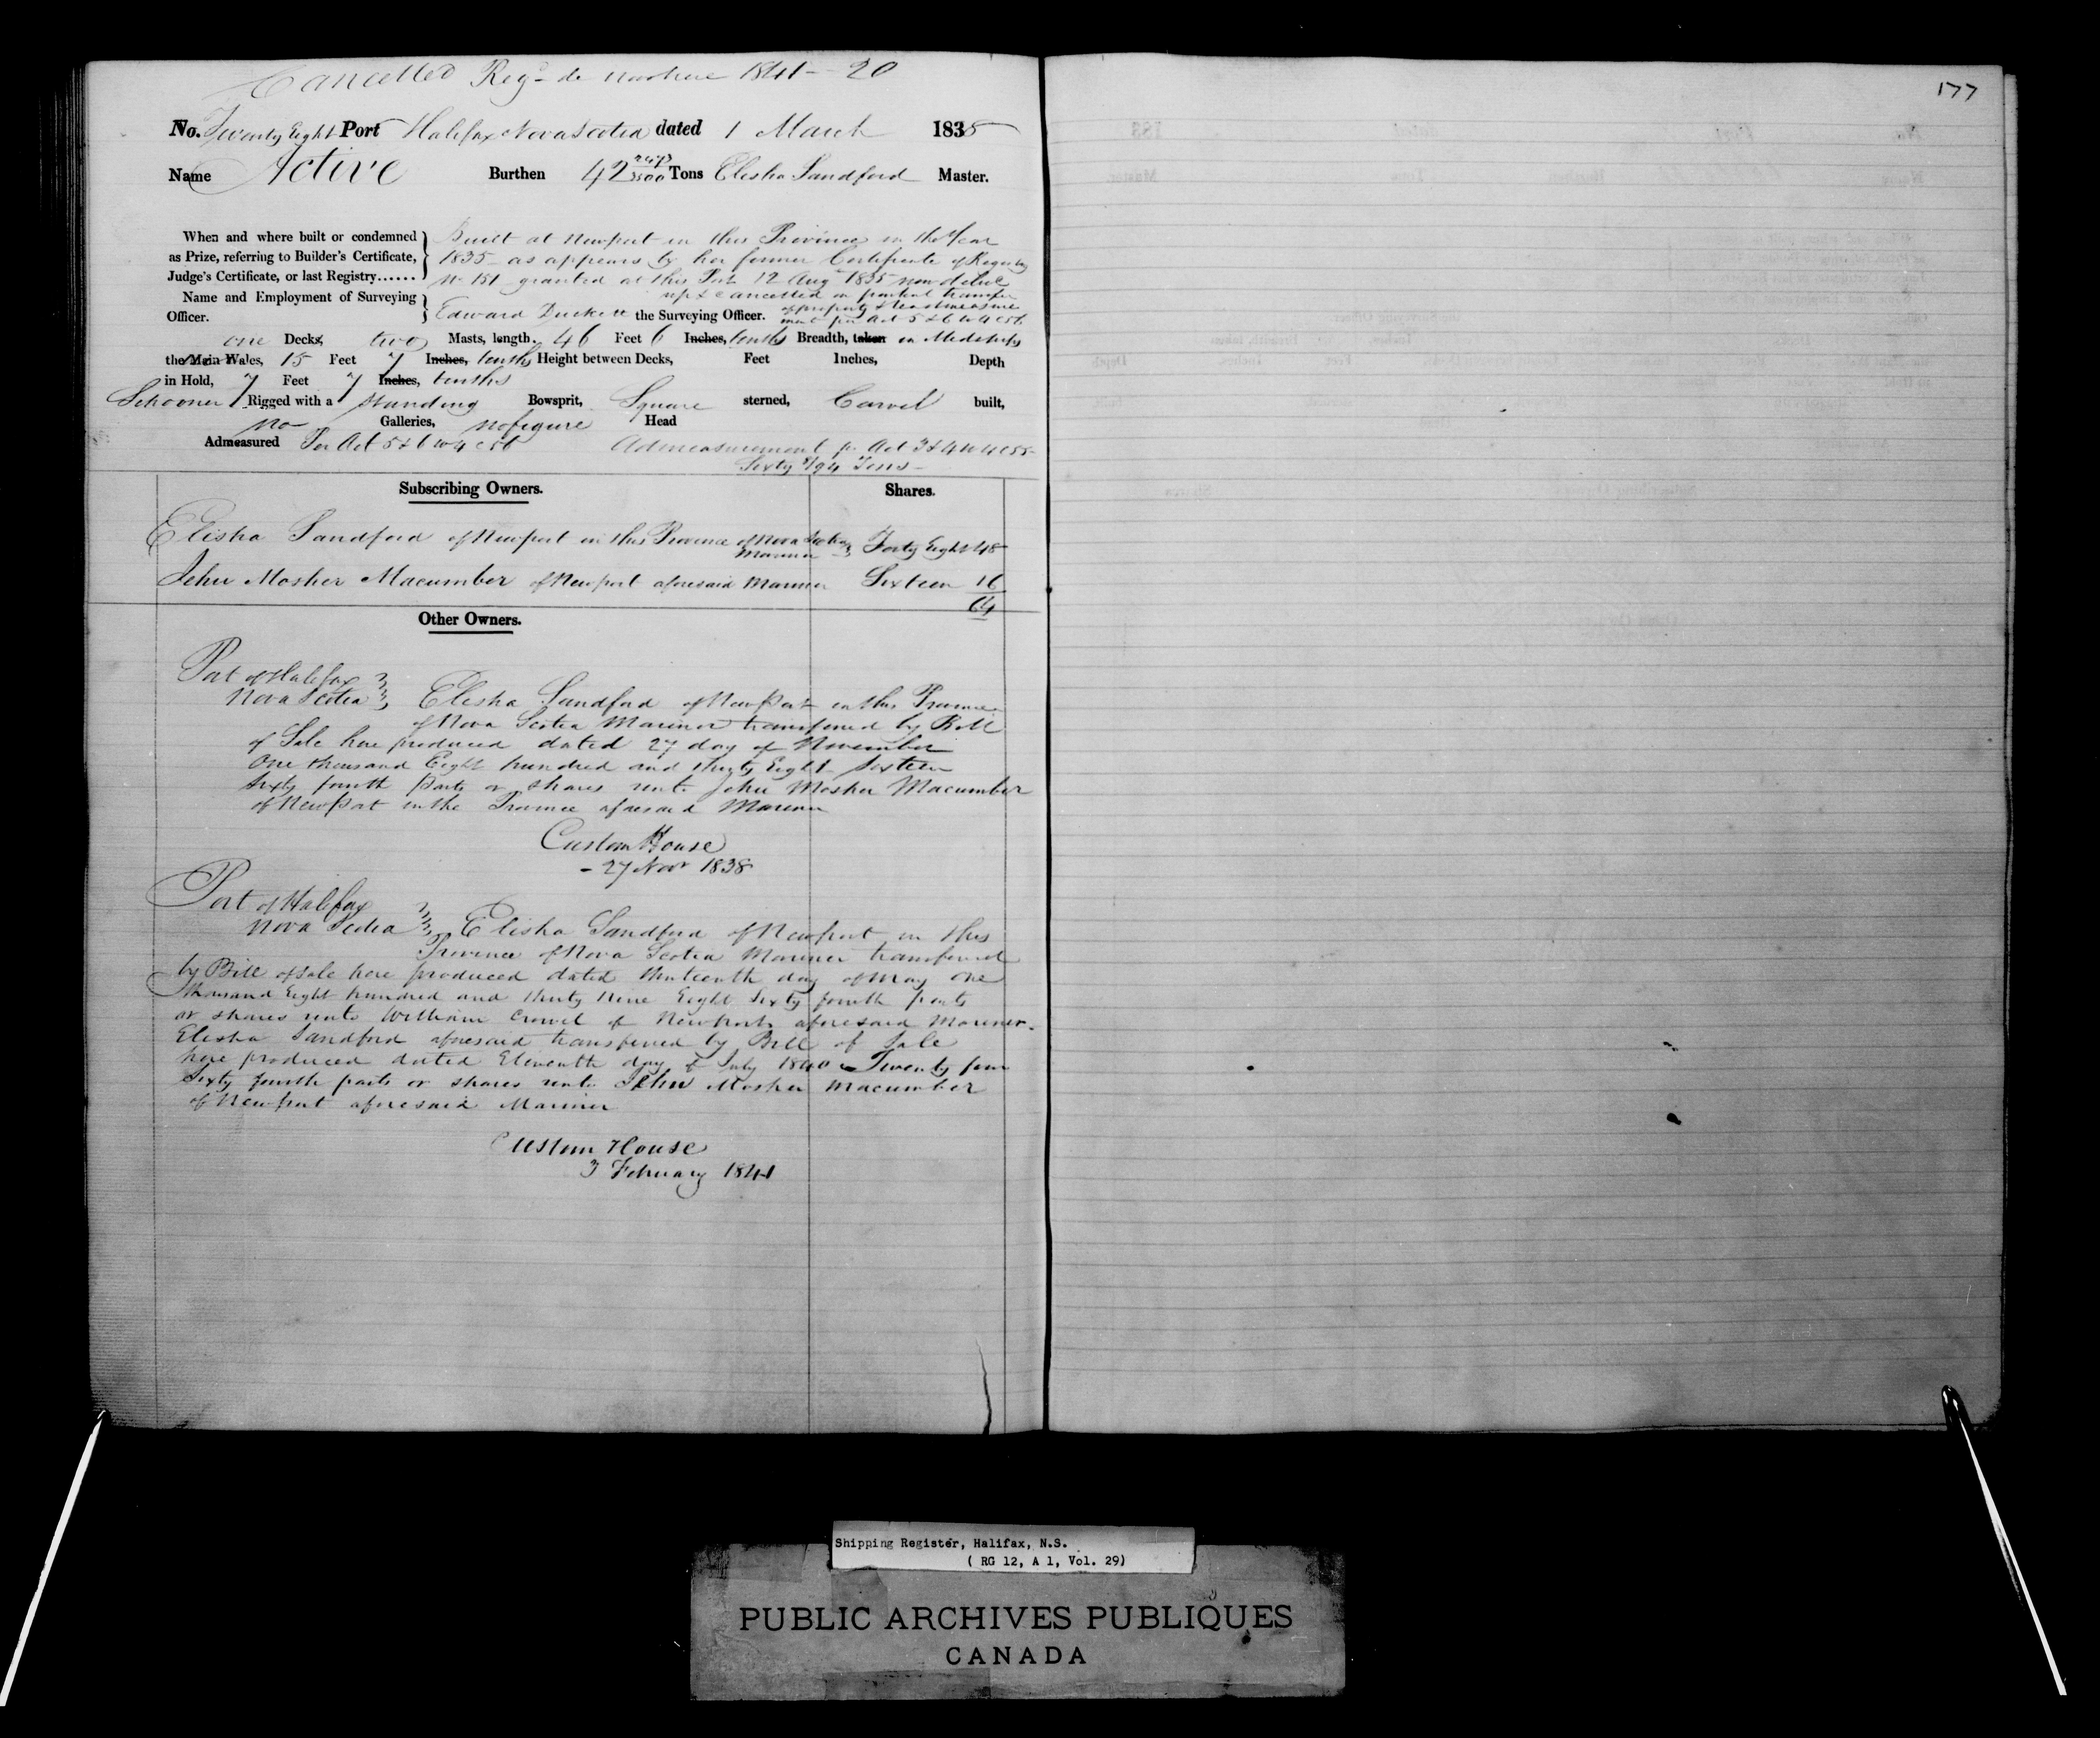 Cancelled Regd de novo here 1841 - 20
177
No. Twenty Eight Port Halifax Nova Scotia dated 1 March 1838
Name Active Burthen 42 Tons Elisha Sandford Master.
When and where built or condemned as Prize, referring to Builder's Certificate, Judge's Certificate, or last Registry......
Built at Newport in this Province in the Year
1835 as appears by her former Certificate of Registry
No 151 granted at this Port 12 Aug 1835 now deliv
up & cancelled on partial transfer
of property & readmeasure
ment per Act 5 & 6 W 4 c 56
Name and Employment of Surveying Officer.
Edward Duckett the Surveying Officer.
one Decks, two Masts, length, 46 Feet 6 Inches, tenths Breadth, taken in Midships
the Main Wales, 15 Feet 7 Inches, tenths Height between Decks, Feet Inches, Depth
in Hold, 7 Feet 7 Inches, tenths
Schooner Rigged with a standing Bowsprit, Square sterned, Carvel built,
no Galleries, no figure Head
Admeasured Per Act 5 & 6 W 4 c 56 Admeasurement pr Act 3 & 4 W 4 c 55
Sixty 8/94 Tons
Subscribing Owners. Shares.
Elisha Sandford of Newport in this Province of Nova Scotia
Mariner Forty Eight 48
John Mosher Macumber of Newport aforesaid Mariner Sixteen 16
64
Other Owners.
Port of Halifax
Nova Scotia Elisha Sandford of Newport in this Province
of Nova Scotia Mariner transferred by Bill
of Sale here produced dated 27 day of November
One thousand Eight hundred and thirty Eight Sixteen
Sixty fourth parts or shares unto John Mosher Macumber
of Newport in the Province aforesaid Mariner
Custom House
- 27 Novr 1838
Port of Halifax
Nova Scotia Elisha Sandford of Newport in this
Province of Nova Scotia Mariner transferred
by Bill of sale here produced dated thirteenth day of May One
thousand Eight hundred and thirty Nine Eight Sixty fourth parts
or shares unto William Crowel of Newport aforesaid Mariner.
Elisha Sandford aforesaid transferred by Bill of Sale
here produced dated Eleventh day of July 1840 Twenty four
Sixty fourth parts or shares unto John Mosher Macumber
of Newport aforesaid Mariner
Custom House
3 February 1841
Shipping Register, Halifax, N.S.
( RG 12, A 1, Vol. 29)
PUBLIC ARCHIVES PUBLIQUES
CANADA